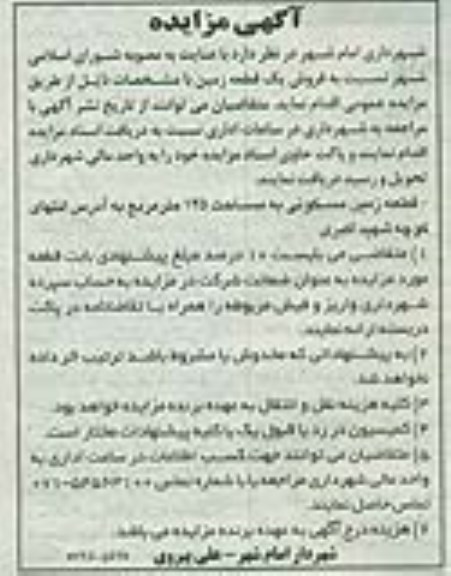 آگهی مزایده
شهرداری امام شهر در نظر دارد با عنایت به مصوبه شورای اسلامی
شهر نسبت به فروش یک قطعه زمین با مشخصات ذیل از طریق
مزایده عمومی اقدام نماید. متقاضیان می توانند از تاریخ نشر آگهی با
مراجعه به شهرداری در ساعات اداری نسبت به دریافت اسناد مزایده
اقدام نمایند و پاکت حاوی اسناد مزایده خود را به واحد مالی شهرداری
تحویل و رسید دریافت نمایند.
- قطعه زمین مسکونی به مساحت متر مربع به آدرس انتهای
کوچه شهید
۱) متقاضی می بایست ۱۰ درصد مبلغ پیشنهادی بابت قطعه
مورد مزایده به عنوان ضمانت شرکت در مزایده به حساب سپرده
شهرداری واریز و فیش مربوطه را همراه با تقاضانامه در پاکت
دربسته ارائه نمایند.
۲) به پیشنهاداتی که مخدوش یا مشروط باشد ترتیب اثر داده
نخواهد شد.
۳) کلیه هزینه نقل و انتقال به عهده برنده مزایده خواهد بود.
۴) کمیسیون در رد یا قبول یک یا کلیه پیشنهادات مختار است.
۵) متقاضیان می توانند جهت کسب اطلاعات در ساعت اداری به
واحد مالی شهرداری مراجعه یا با شماره تماس
تماس حاصل نمایند.
۶) هزینه درج آگهی به عهده برنده مزایده می باشد.
شهردار امام شهر - علی پیروی